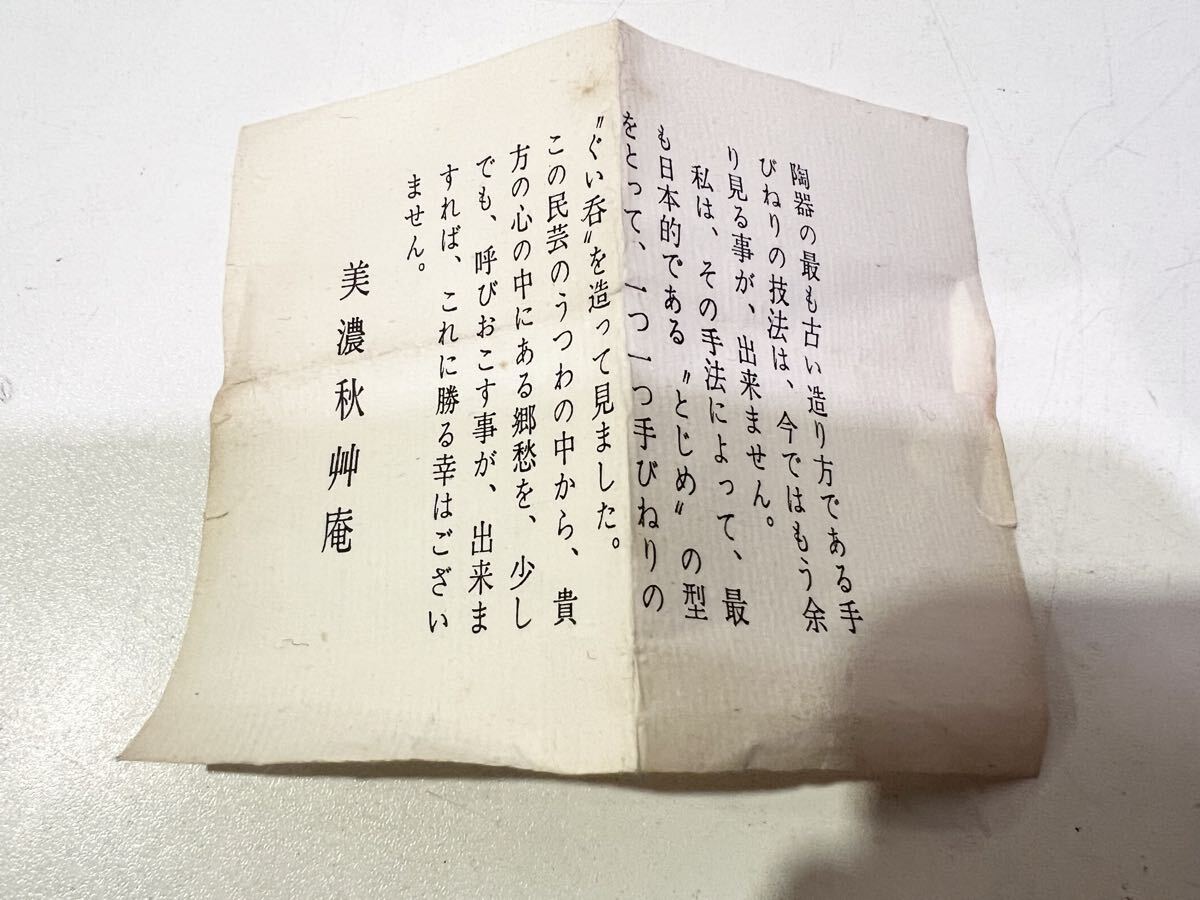 陶器の最も古い造り方である手
びねりの技法は、今ではもう余
り見る事が、出来ません。
私は、その手法によって、最
も日本的である〝とじめ〟の型
をとって、一つ一つ手びねりの
〝ぐい呑〟を造って見ました。
この民芸のうつわの中から、貴
方の心の中にある郷愁を、少し
でも、呼びおこす事が、出来ま
すれば、これに勝る幸はござい
ません。
美濃秋艸庵